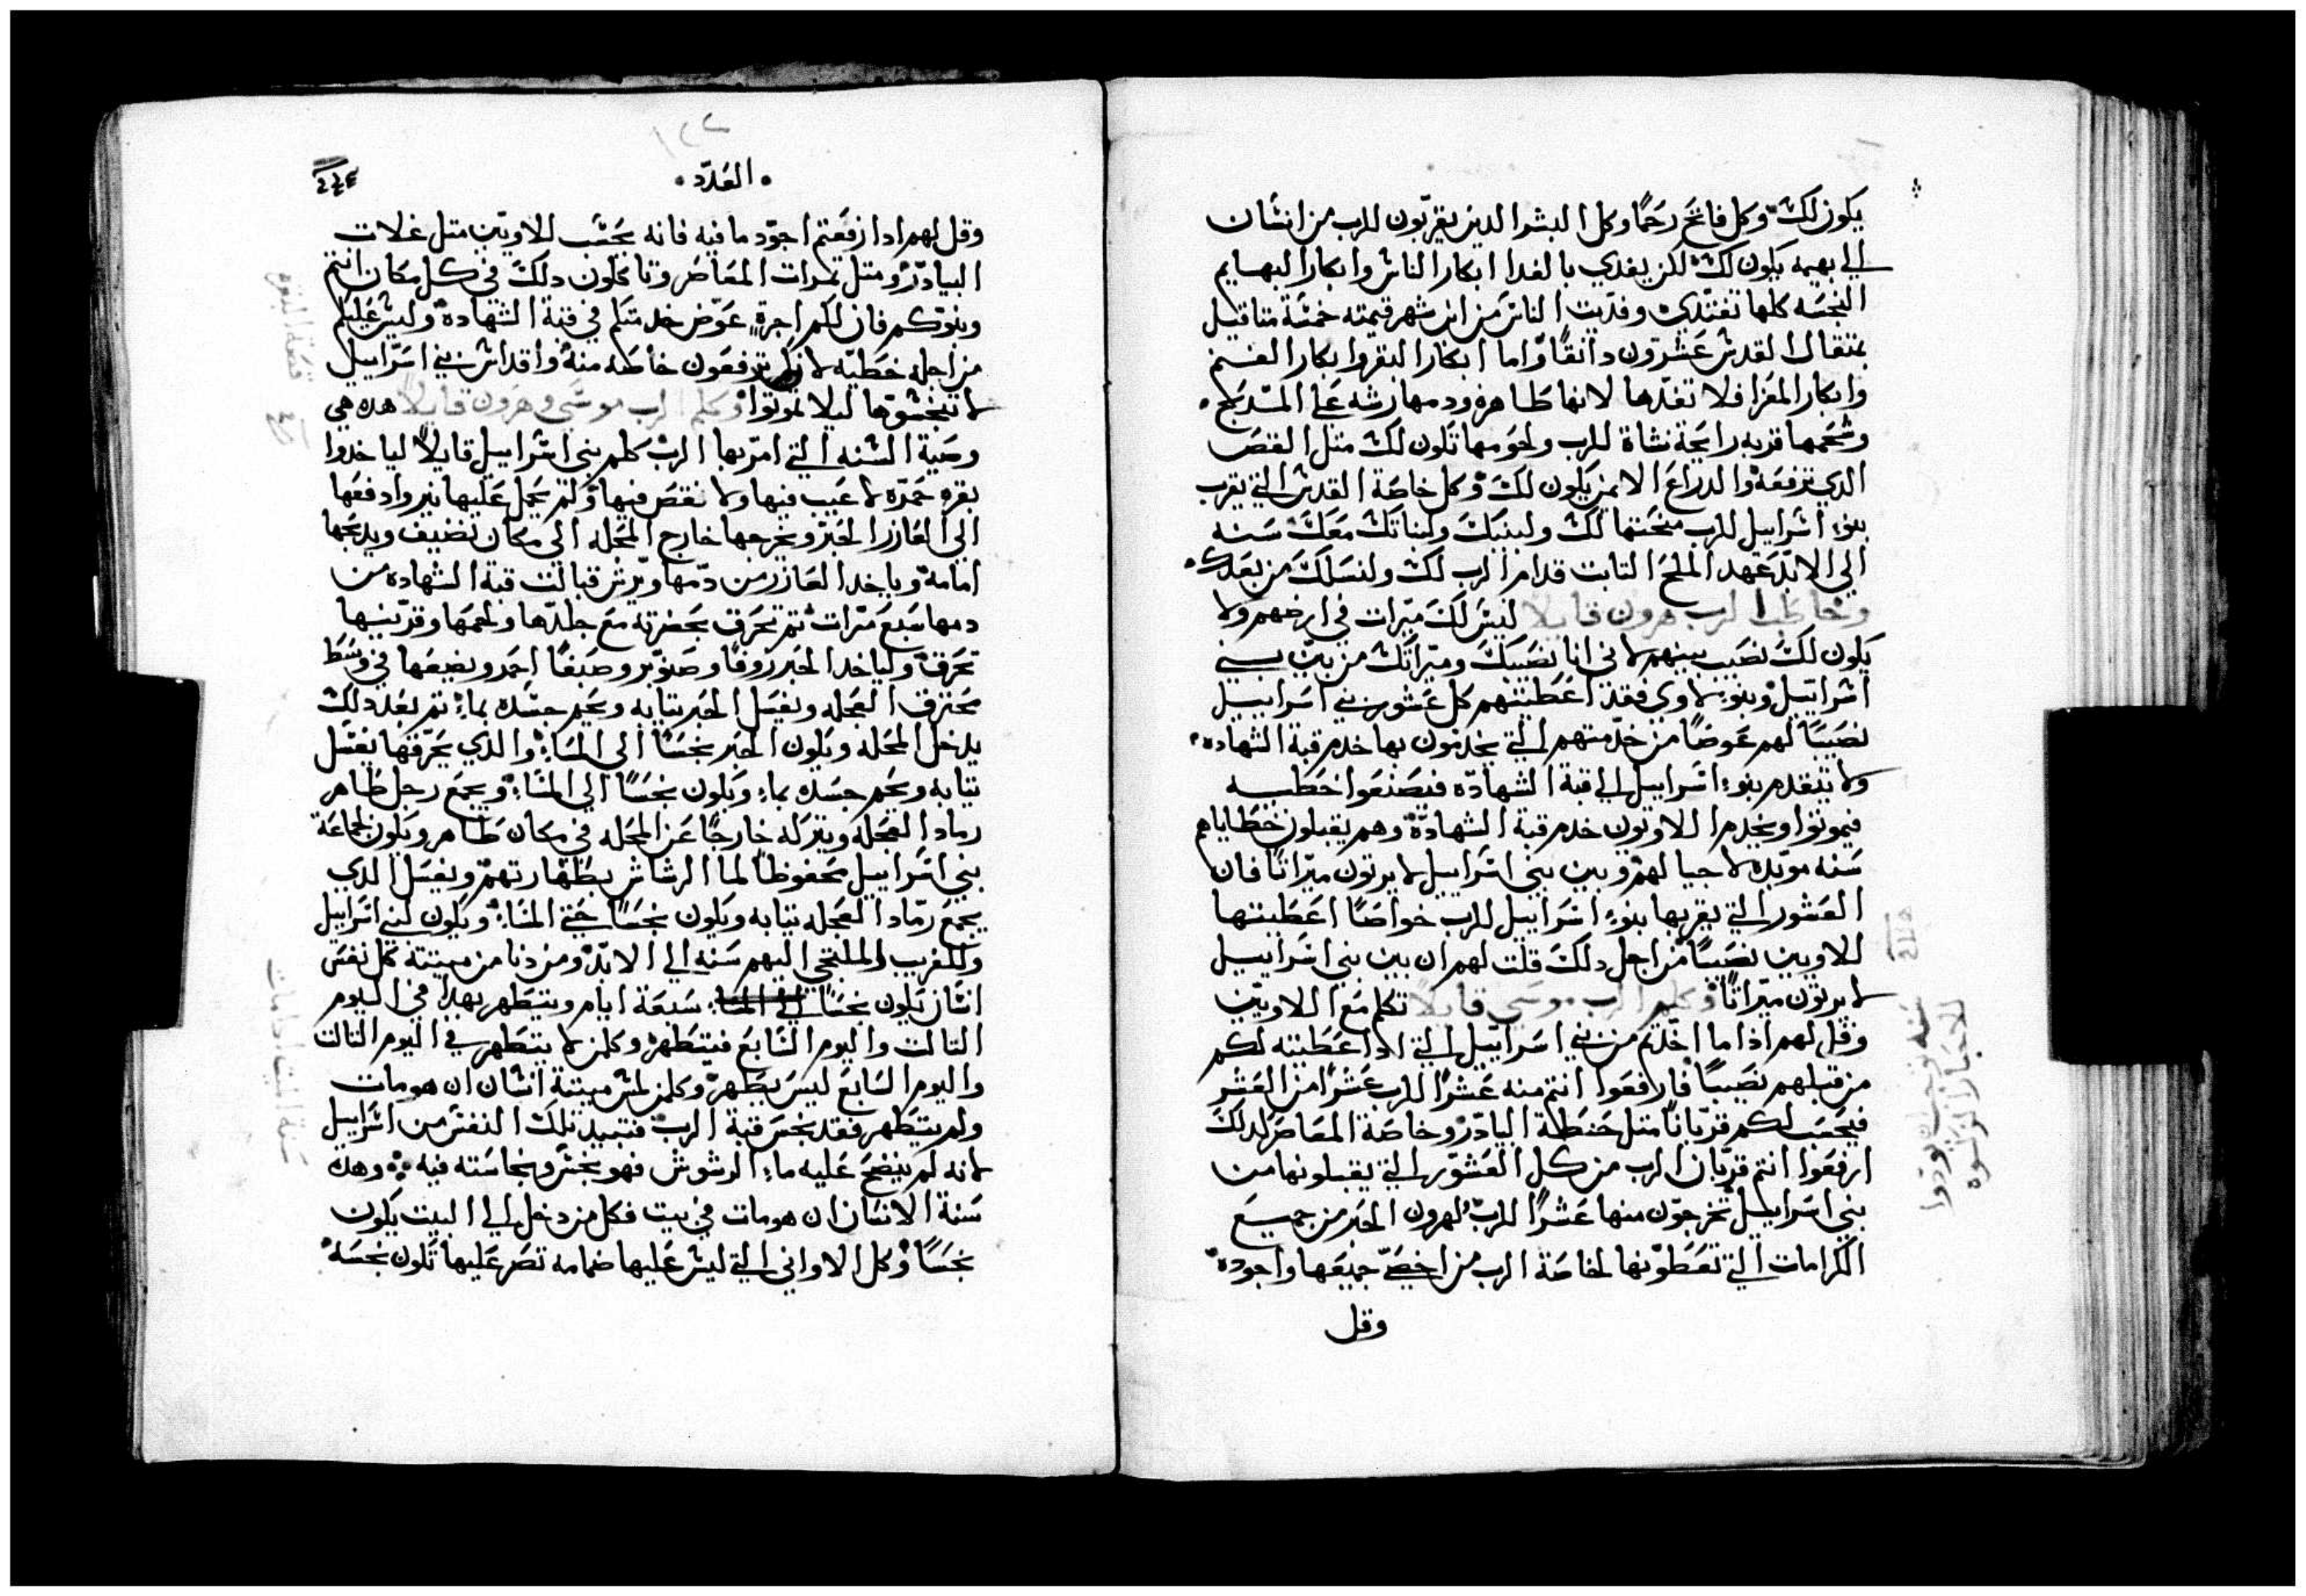 يكون لك وكل فاتح رحمًا وكل البشر الدين يقربون للرب من انسان
الي بهيمه يكون لك لكن يفدي بالفدا ابكار الناس وابكار البهايم
النجسه كلها تفتدي وفديت الناس من ابن شهر قيمته خمسة متاقيل
بمتقال القدس عشرون دانقًا واما ابكار البقر وابكار الغنم
وابكار المعزا فلا تفدها لانها طاهره ودمها رشه علي المدبح
وشحمها قربه رايحة نشاة للرب ولحومها تكون لك متل القص
الدي ترفعه والدراع الايمن يكون لك وكل خاصة القدس التي يقرب
بنوا اسراييل للرب منحتها لك ولبنيك ولبناتك معك سنه
الي الابد عهد الملح التابت قدام الرب لك ولنسلك من بعدك
وخاطب الرب هرون قايلا ليس لك ميرات في ارضهم ولا
يكون لك نصيب بينهم لاني انا نصيبك وميراتك من بين بني
اسراييل وبنو لاوي فقد اعطيتهم كل عشور بني اسراييل
نصيبًا لهم عوضًا من خدمتهم التي يخدمون بها خدم قبة الشهاده
ولا يتقدم بنوا اسراييل الي قبة الشهاده فيصنعوا خطيه
فيموتوا ويخدم اللاويون خدم قبة الشهادة وهم يقبلون خطاياهم
سنه موبده لاجيالهم وبين بني اسراييل لا يرتون ميراتًا فان
العشور التي يقربها بنوا اسراييل للرب خواصًا اعطيتها
اللاويين نصيبًا من اجل دلك قلت لهم ان بين بني اسراييل
لا يرتون ميراتًا وكلم الرب موسي قايلاً تكلم مع اللاويين
وقل لهم اذا ما اخدتم من بني اسراييل التي ادا اعطيته لكم
من قبلهم نصيبًا فارفعوا انتم منه عشرًا للرب عشرًا من العشر
فيحسب لكم قربانًا متل حنطة البيادر وخاصة المعاصر لدلك
ارفعوا انتم قربان الرب من كل العشور التي يقبلونها من
بني اسراييل تخرجون منها عشرًا للرب لهرون الحبر من جميع
الكرامات التي تعطونها لخاصة الرب من اخص جميعها واجوده
وقل
سنه توجب ان يودوا
الاحبار الزنوره
العدد
وقل لهم ادا رفعتم اجود ما فيه فانه يحسب للاويين متل غلات
البيادر ومتل تمرات المعاصر وتاكلون دلك في كل مكان انتم
وبنوكم فان لكم اجرة عوض خدمتكم في قبة الشهادة وليس عليكم
من اجله خطيه لانكم ترفعون خاصه منه واقداس بني اسراييل
لا تنجسوها ليلا تموتوا وكلم الرب موسي وهرون قايلاً هده هي
وصية السنه التي امر بها الرب كلم بني اسراييل قايلاً لياخدوا
بقره حمره لا عيب فيها ولا نقص فيها ولم يحمل عليها نير وادفعها
الي العازر الحبر ويخرجها خارج المحله الي مكان نضيف ويدبحها
امامه وياخد العازر من دمها ويرش قبالت قبة الشهاده من
دمها سبع مرات تم تحرق بحضرته مع جلدها ولحمها وقرتيها
تحرق ولياخد الحبر زوفا وصنوبر وصبغًا احمر ويضعها في وسط
محترق العجله ويغسل الحبر تيابه ويحم جسده بماء تم بعد دلك
يدخل المحله ويكون الحبر نجسًا الي المساء والدي يحرقها يغسل
تيابه ويحم جسده بماء ويكون نجسًا الي المساء ويجمع رجل طاهر
رماد العجله ويتركه خارجًا عن المحله في مكان طاهر ويكون لجماعة
بني اسراييل محفوظًا لما الرشاش بطهارتهم ويغسل الدي
يجمع رماد العجله تيابه ويكون نجسًا حتي المساء ويكون لبني اسراييل
وللغريب والملتجي اليهم سنه الي الابد ومن دنا من ميتته كل نفس
انسان يكون نجسًا الي المساء سبعة ايام ويتطهر بهدا في اليوم
التالت واليوم السابع فيتطهر وكلمن لا يتطهر في اليوم التالت
واليوم السابع ليس يطهر وكلمن لمس ميتة انسان ان هو مات
ولم يتطهر فقد نجس قبة الرب فتبيد تلك النفس من اسراييل
لانه لم ينضح عليه ماء الرشوش فهو نجس ونجاسته فيه وهده
سنة الانسان ان هو مات في بيت فكل من دخل الي البيت يكون
نجسًا وكل الاواني التي ليس عليها ضمامه تصر عليها تكون نجسه
سنة الميت ادا مات